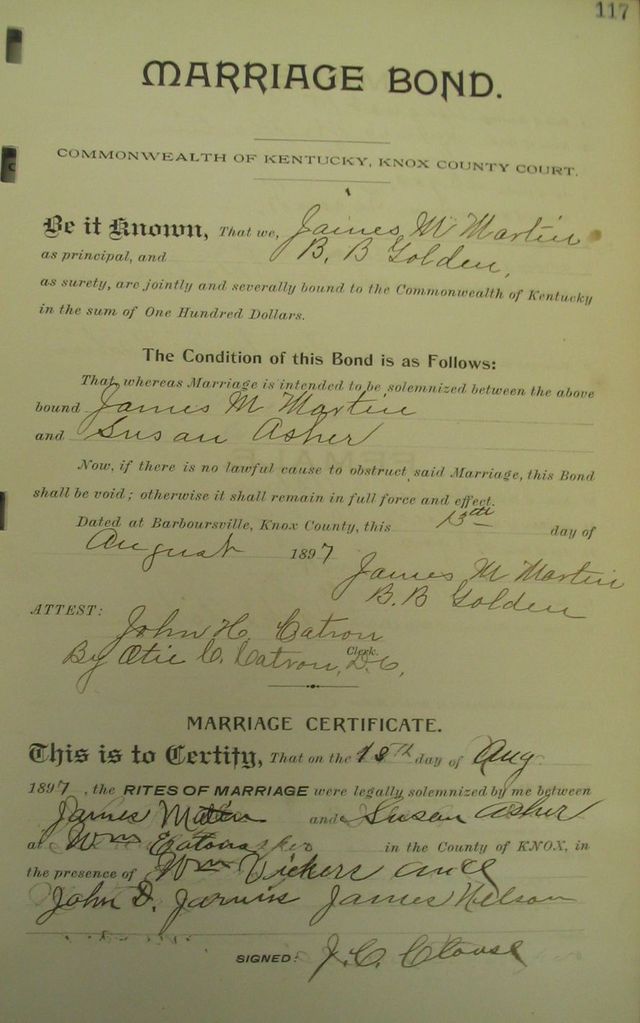 117
MARRIAGE BOND.
COMMONWEALTH OF KENTUCKY, KNOX COUNTY COURT.
Be it Known, That we, James M Martin
as principal, and B. B Golden,
as surety, are jointly and severally bound to the Commonwealth of Kentucky
in the sum of One Hundred Dollars.
The Condition of this Bond is as Follows:
That whereas Marriage is intended to be solemnized between the above
bound James M Martin
and Susan Asher
Now, if there is no lawful cause to obstruct said Marriage, this Bond
shall be void; otherwise it shall remain in full force and effect.
Dated at Barboursville, Knox County, this 13th day of
August 1897
James M Martin
B. B Golden
ATTEST:
John H. Catron
Clerk.
By Otie C. Catron, D.C.
MARRIAGE CERTIFICATE.
This is to Certify, That on the 18th day of Aug
1897, the RITES OF MARRIAGE were legally solemnized by me between
James and Susan Asher
at Wm in the County of KNOX, in
the presence of Wm Vickers and
John D. Jarvis James Nelson
SIGNED: J. C. Clouse